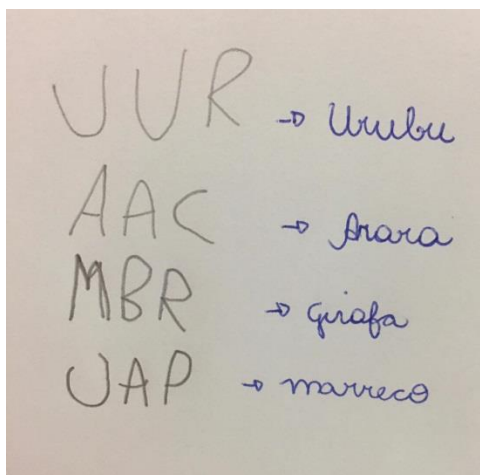 UUR → Urubu
AAC → Arara
MBR → girafa
UAP → marreco